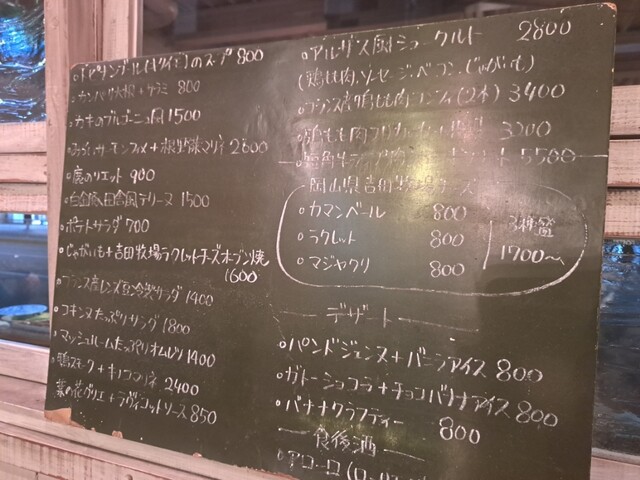 トピナンブール(キクイモ)のスープ 800
・カンパーニュ大根+サラミ 800
・カキのブルゴーニュ風 1500
サーモンフュメ+根野菜マリネ 2600
・鹿のリエット 900
田舎風テリーヌ 1500
・ポテトサラダ 700
・じゃがいも+吉田牧場ラクレットチーズオーブン焼
1600
・フランス産レンズ豆冷製サラダ 1400
・コキンヌたっぷりサラダ 1800
・マッシュルームたっぷりオムレツ 1400
・鴨スモーク+キノコマリネ 2400
菜の花グリエ+ラヴィゴットソース 850
・アルザス風シュークルト 2800
(鶏もも肉、ソーセージ、ベーコン、じゃがいも)
・フランス産鴨もも肉コンフィ(2本) 3400
・鶏もも肉 3200
・短角牛 5500
岡山県吉田牧場チーズ
・カマンベール 800
・ラクレット 800
・マジヤクリ 800
3種盛
1700〜
デザート
・パンドジェンヌ+バニラアイス 800
・ガトーショコラ+チョコバナナアイス 800
・バナナクラフティー 800
食後酒
・アローロ